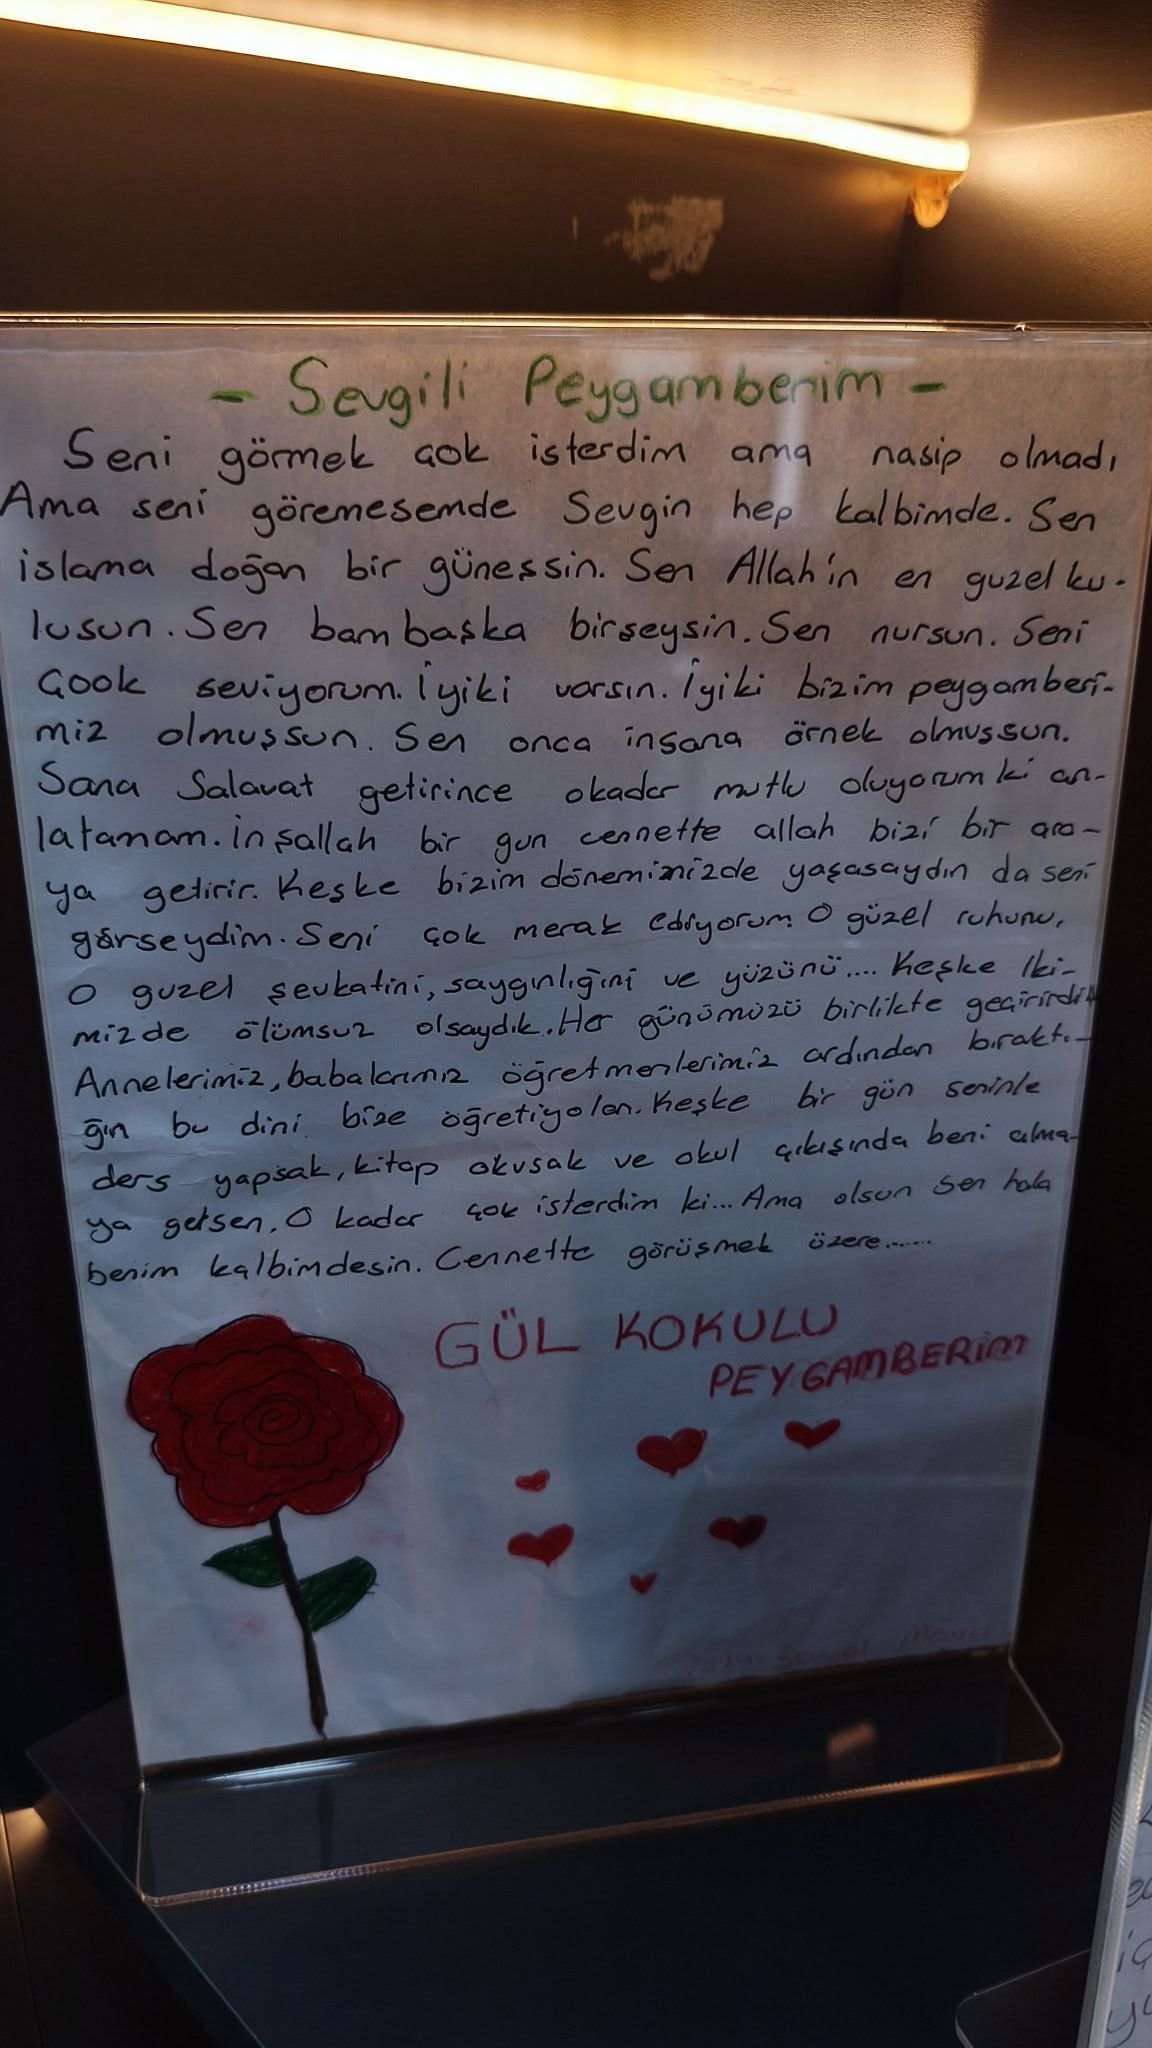 - Sevgili Peygamberim -
Seni görmek çok isterdim ama nasip olmadı
Ama seni göremesemde Sevgin hep kalbimde. Sen
islama doğan bir güneşsin. Sen Allah'ın en guzel ku-
lusun. Sen bambaşka birşeysin. Sen nursun. Seni
Çook seviyorum. İyiki varsın. İyiki bizim peygamberi-
miz olmuşsun. Sen onca insana örnek olmuşsun.
Sana Salavat getirince okadar mutlu oluyorum ki an-
latamam. İnşallah bir gun cennette allah bizi bir ara-
ya getirir. Keşke bizim dönemimizde yaşasaydın da seni
görseydim. Seni çok merak ediyorum. O güzel ruhunu,
O guzel şevkatini, saygınlığını ve yüzünü.... Keşke iki-
mizde ölümsuz olsaydık. Her günümüzü birlikte geçirirdik
Annelerimiz, babalarımız öğretmenlerimiz ardından bıraktı-
ğın bu dini bize öğretiyolar. Keşke bir gün seninle
ders yapsak, kitap okusak ve okul çıkışında beni alma-
ya gelsen. O kadar çok isterdim ki... Ama olsun sen hala
benim kalbimdesin. Cennette görüşmek üzere......
GÜL KOKULU
PEYGAMBERİM